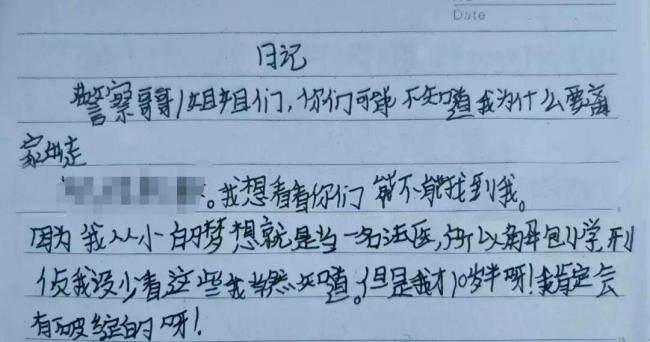 Date
日记
警察哥哥/姐姐们，你们可能不知道我为什么要离
家出走
。我想看看你们能不能找到我。
因为我从小的梦想就是当一名法医，所以解剖学刑
侦我没少看这些我当然知道。但是我才10岁半呀！我肯定会
有破绽的呀！